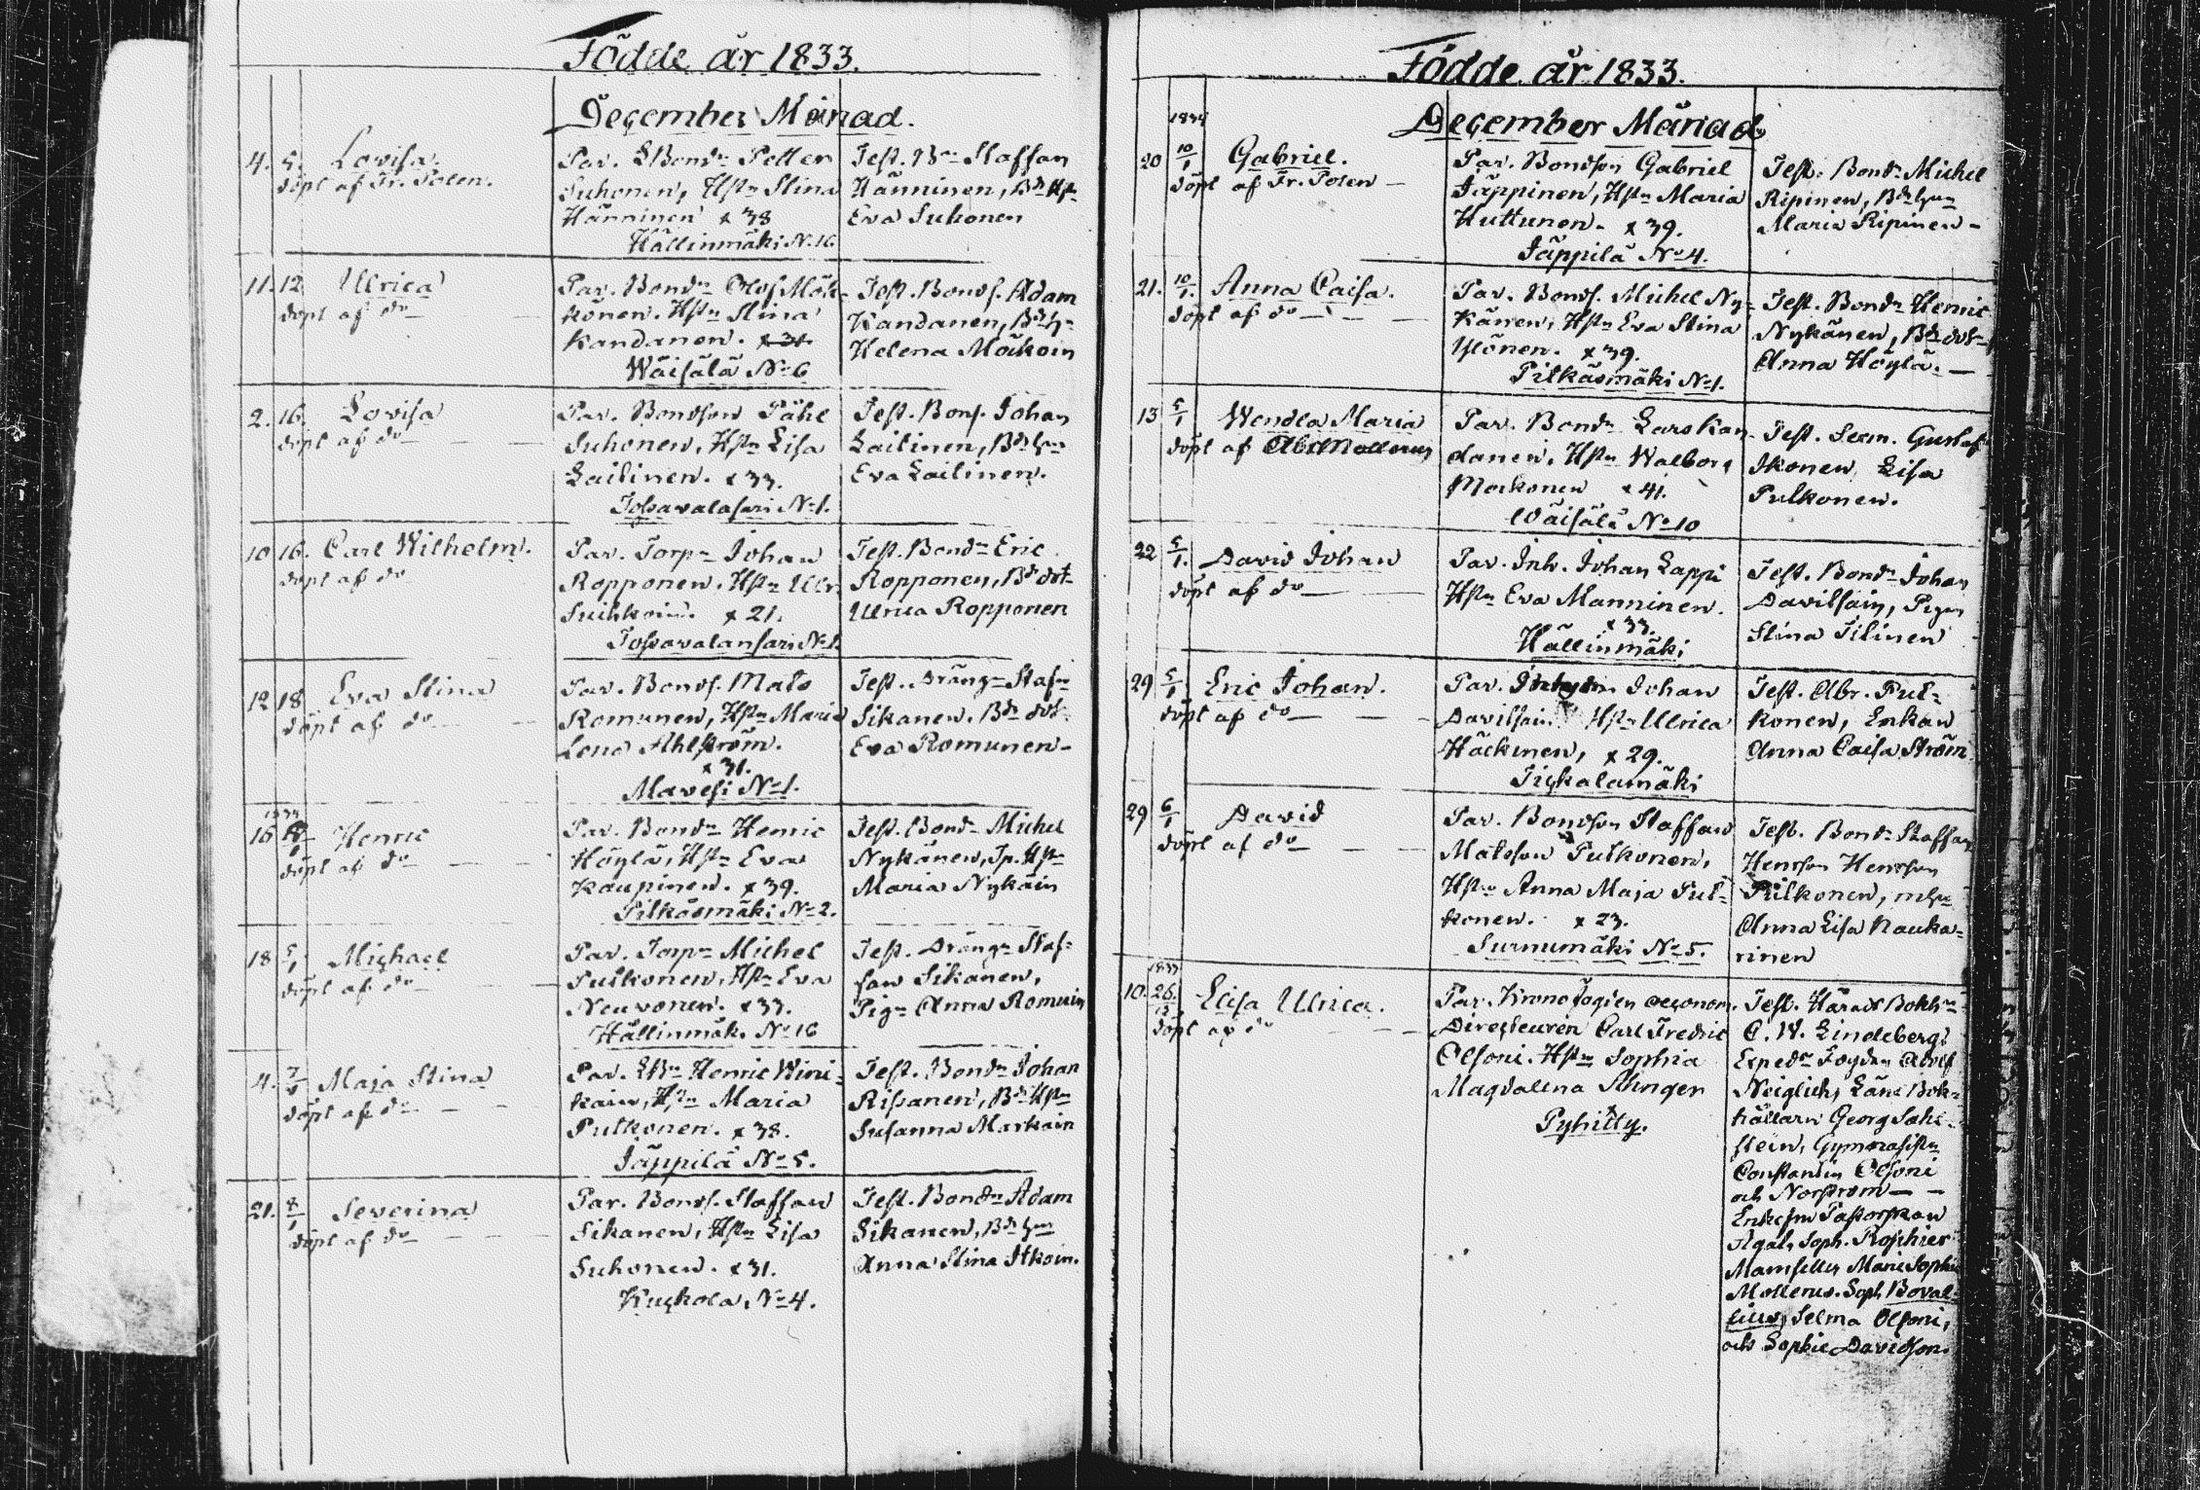 Födde år 1833.
December Månad.
4. 5. Lovisa.
döpt af Fr. Polen.
Par. LBondn Petter
Suhonen, Hstn Stina
Hänninen x 38
Hällinmäki No 16
Test. Bn Staffan
Hänninen, Bd Hn
Eva Suhonen
11. 12 Ulrica
döpt af do
Par. Bondn Olof Möh-
könen. Hstn Stina
Kandanen. x 31.
Wäisälä No 6
Test. Bonds. Adam
Kandanen, Bd hn
Helena Möikoin
2. 16. Lovisa
döpt af do
Par. Bondson Påhl
Suhonen, Hstn Lisa
Laitinen. x 33.
Tossavalasari No 1.
Test. Bons. Johan
Laitinen, Bd hn
Eva Laitinen.
10 16. Carl Wilhelm.
döpt af do
Par. Torpn Johan
Ropponen. Hstn Ulr.
Suihkoin. x 21.
Tossavalansari No 1.
Test. Bondn Eric
Ropponen, Bd dotr
Ulrica Ropponen
12 18 Eva Stina
döpt af do
Par. Bonds. Mats
Romunen, Hstn Maria
Lena Ahlström.
x 31.
Mavesi No 1.
Test. Drängn Stafn
Sikanen. Bd dotr
Eva Romunen
1834
16 Henric
döpt af do
Par. Bondn Henric
Höylä, Hstn Eva
Kaupinen. x 39.
Pitkäsmäki No 2.
Test. Bondn Michel
Nykänen, Tp. Hstn
Maria Nykäin
18 5/1 Michael
döpt af do
Par. Torpn Michel
Pulkonen, Hstn Eva
Neuvonen. x 33.
Hällinmäki No 16
Test. Drängn Staf-
fan Sikanen,
Pign Anna Romuin
4. 7/1 Maja Stina
döpt af do
Par. LBn Henric Wini-
kain, Hstn Maria
Pulkonen. x 38.
Jäppilä No 5.
Test. Bondn Johan
Rissanen, Bd Hstn
Susanna Markain
21. 8/1 Severina
döpt af do
Par. Bonds. Staffan
Sikanen, Hstn Lisa
Suhonen. x 31.
Kuckola, No 4.
Test. Bondn Adam
Sikanen, Bd hn
Anna Stina Itkoin.
Födde år 1833.
December Månad
1834
20 10/1 Gabriel.
döpt af Fr. Polen
Par. Bondson Gabriel
Jäppinen, Hstn Maria
Huttunen. x 39.
Jäppilä No 4.
Test. Bondn Michel
Ripinen, Bd hn
Maria Ripinen
21. 10/1. Anna Caisa.
döpt af do
Par. Bonds. Michel Ny-
känen, Hstn Eva Stina
Ylönen. x 39.
Pitkäsmäki No 1.
Test. Bondn Henric
Nykänen, Bd dotr
Anna Höylä.
13 5/1 Wendla Maria
döpt af Abr Mollerus
Par. Bondn Lars Kan-
danen, Hstn Walborg
Morkonen x 41.
Wäisälä No 10
Test. Sexm. Gustaf
Ikonen Lisa
Pulkonen.
22 5/1. David Johan
döpt af do
Par. Inh. Johan Lappi
Hstn Eva Manninen.
x 33.
Hällinmäki
Test. Bondn Johan
Davilsain, Pign
Stina Tilinen
29 5/1 Eric Johan.
döpt af do
Par. Johan
Davilsain Hstn Ulrica
Häckinen, x 29.
Tickalamäki
Test. Abr. Pul-
konen, Enkan
Anna Caisa Ström
29 6/1 David
döpt af do
Par. Bondson Staffan
Matsson Pulkonen,
Hstn Anna Maja Pul-
konen. x 23.
Surnumäki No 5.
Test. Bondn Staffan
Henrson Henrson
Pulkonen, mhn
Anna Lisa Nauka-
rinen
1833
10. 26. Elisa Ulrica.
döpt af do
Par. Kronofogden oeconom.
Directeuren Carl Fredric
Olsoni. Hstn Sophia
Magdalena Stinger
Pyhitty.
Test. Härads Bokhn
C. W. Lindeberg?
Expedn Fogden Adolf
Neiglick, Läns Bok-
hållarn Georg Sahl-
stein, Gymnasistn
Constantin Olsoni
och Norström
Enkefru Pastorskan
Agat. Soph. Roschier
Mamseller Marie Sophie
Mollerus. Soph. Boval-
lius, Selma Olsoni,
och Sophie Davidson.